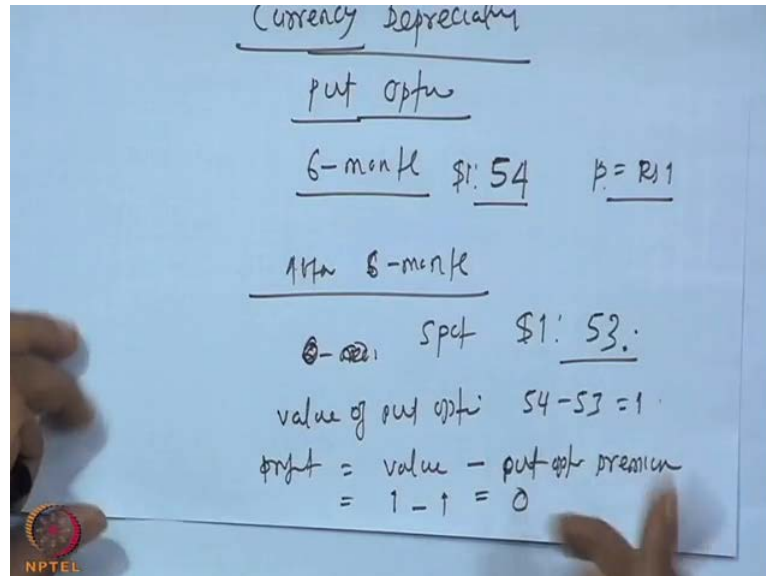 Currency Depreciatn
put optn
6-month $1: 54 p = Rs 1
After 6-month
Spot $1: 53.
value of put optn 54-53 = 1
proft = value - put optn premium
= 1 - 1 = 0
NPTEL